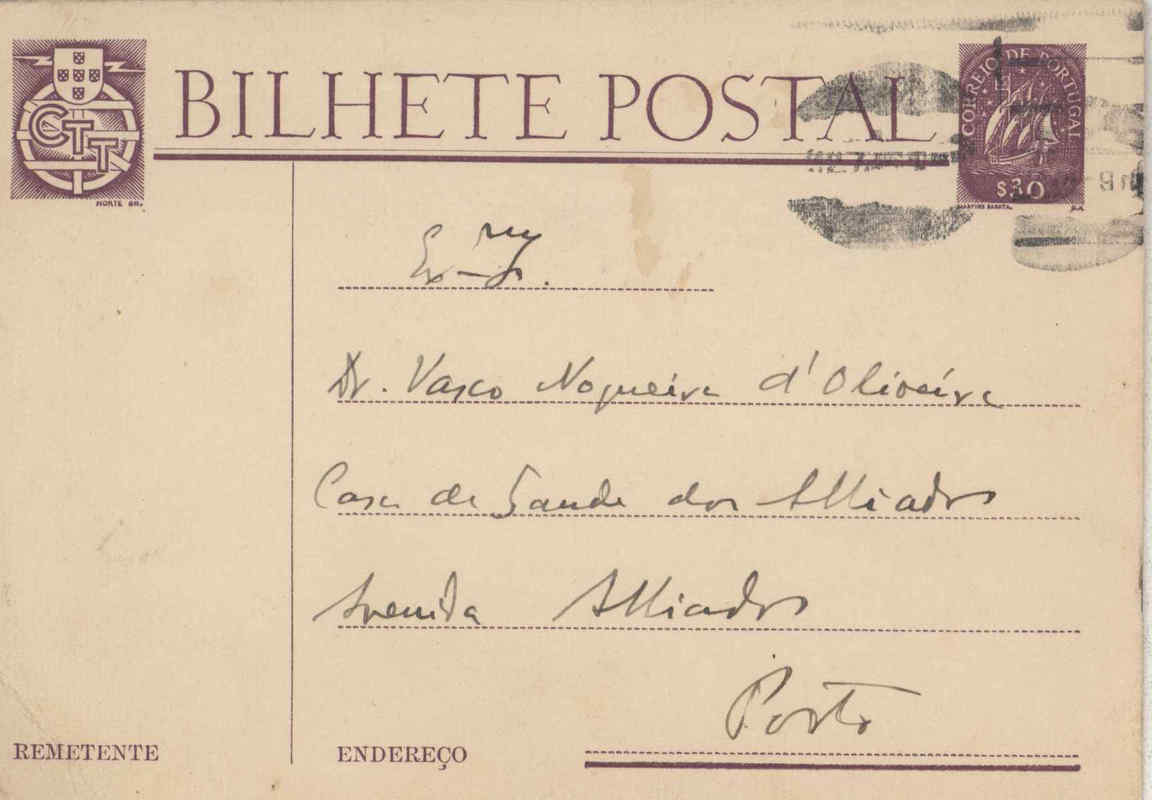 CTT
BILHETE POSTAL
CORREIO DE PORTUGAL
$30
NORTE GR.
MARTINS BARATA.
Ex.mo Sr.
Dr. Vasco Nogueira d'Oliveira
Casa de Saude dos Alliados
Avenida Alliados
Porto
REMETENTE
ENDEREÇO